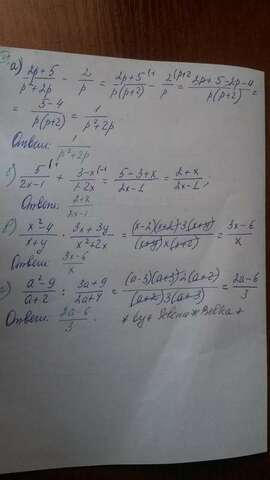 а) (2p+5)/(p²+2p) - 2/p = (2p+5)/(p(p+2)) - 2/p = (2p+5-2p-4)/(p(p+2)) =
= (5-4)/(p(p+2)) = 1/(p²+2p)
Ответ: 1/(p²+2p)
5/(2x-1) + (3-x)/(1-2x) = (5-3+x)/(2x-1) = (2+x)/(2x-1);
Ответ: (2+x)/(2x-1)
(x²-4)/(x+y) · (3x+3y)/(x²+2x) = ((x-2)(x+2)3(x+y))/((x+y)x(x+2)) = (3x-6)/x
Ответ: (3x-6)/x
(a²-9)/(a+2) : (3a+9)/(2a+4) = ((a-3)(a+3)2(a+2))/((a+2)3(a+3)) = (2a-6)/3
Ответ: (2a-6)/3.